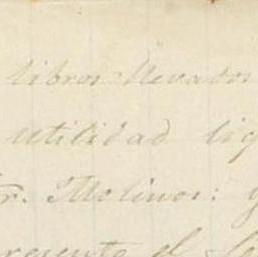 libros llevados
utilidad liq
r. Molinos: y
presente el